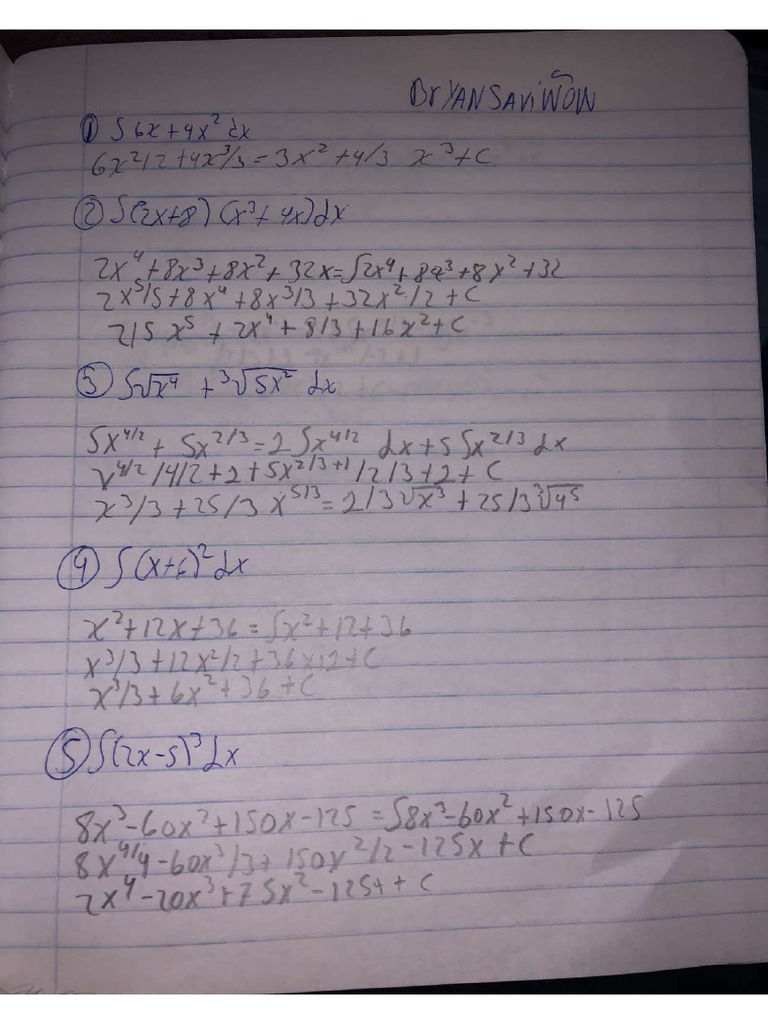 BrYANSAViÑON
① ∫6x+4x² dx
6x²/2+4x³/3=3x²+4/3 x³+C
② ∫(2x+8)(x³+4x)dx
2x⁴+8x³+8x²+32x=∫2x⁴+8x³+8x²+32
2x⁵/5+8x⁴+8x³/3+32x²/2+C
2/5x⁵+2x⁴+8/3+16x²+C
③ ∫√x⁴ +³√5x² dx
5x⁴/²+5x²/³=2∫x⁴/² dx+5∫x²/³dx
x⁴/²/4/2+2+5x²/³⁺¹/2/3+2+C
x³/3+25/3 x⁵/³=2/3√x³+25/3³√45
④ ∫(x+6)²dx
x²+12x+36=∫x²+12+36
x³/3+12x²/2+36x12+C
x³/3+6x²+36+C
⑤ ∫(2x-5)³dx
8x³-60x²+150x-125=∫8x³-60x²+150x-125
8x⁴/4-60x³/3+150x²/2-125x+C
2x⁴-20x³+75x²-125x+C